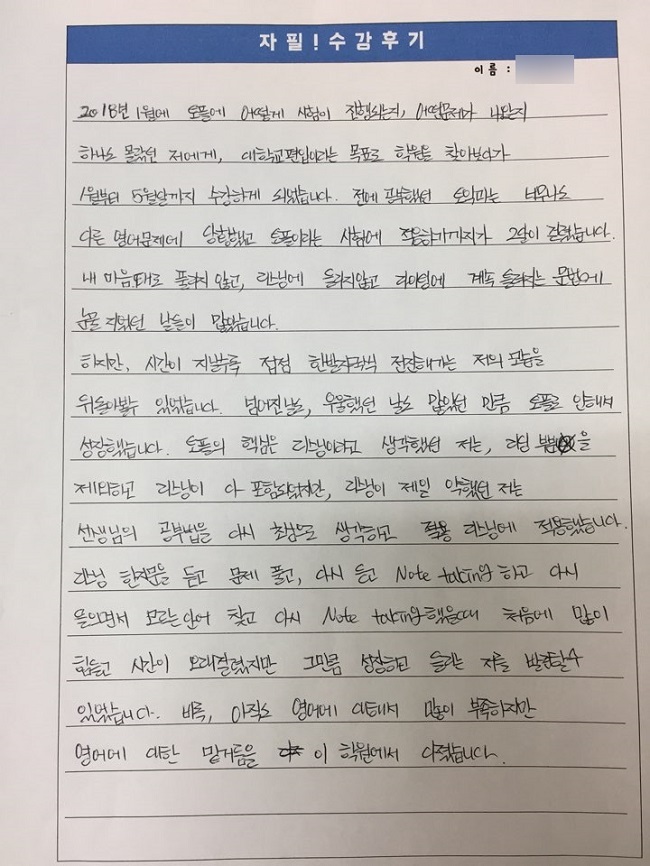 자필! 수강후기
이름 :
2018년 1월에 토플에 어떻게 시험이 진행되는지, 어떤문제가 나오는지
하나도 몰랐던 저에게, 대학교편입이라는 목표로 학원을 찾아보다가
1월부터 5월달까지 수강하게 되었습니다. 전에 공부했던 토익과는 너무나도
다른 영어문제에 당황했고 토플이라는 시험에 적응하기까지가 2달이 걸렸습니다.
내 마음대로 풀리지 않고, 리스닝에 들리지않고 라이팅에 계속 틀려지는 문법에
눈물 지었던 날들이 많았습니다.
하지만, 시간이 지날수록 점점 한발자국씩 전진해가는 저의 모습을
뒤돌아볼수 있었습니다. 넘어진날도, 우울했던 날도 많았던 만큼 토플로 인해서
성장했습니다. 토플의 핵심은 리스닝이라고 생각했던 저는, 리딩 을
제외하고 리스닝이 다 포함되었지만, 리스닝이 제일 약했던 저는
선생님의 공부법을 다시 초점으로 생각하고 적용 리스닝에 적용했습니다.
리스닝 한지문을 듣고 문제 풀고, 다시 듣고 Note taking 하고 다시
들으면서 모르는단어 찾고 다시 Note taking 했을때 처음에 많이
힘들고 시간이 오래걸렸지만 그만큼 성장하고 들리는 저를 발견할수
있었습니다. 비록, 아직도 영어에 대해서 많이 부족하지만
영어에 대한 밑거름을 이 학원에서 다졌습니다.